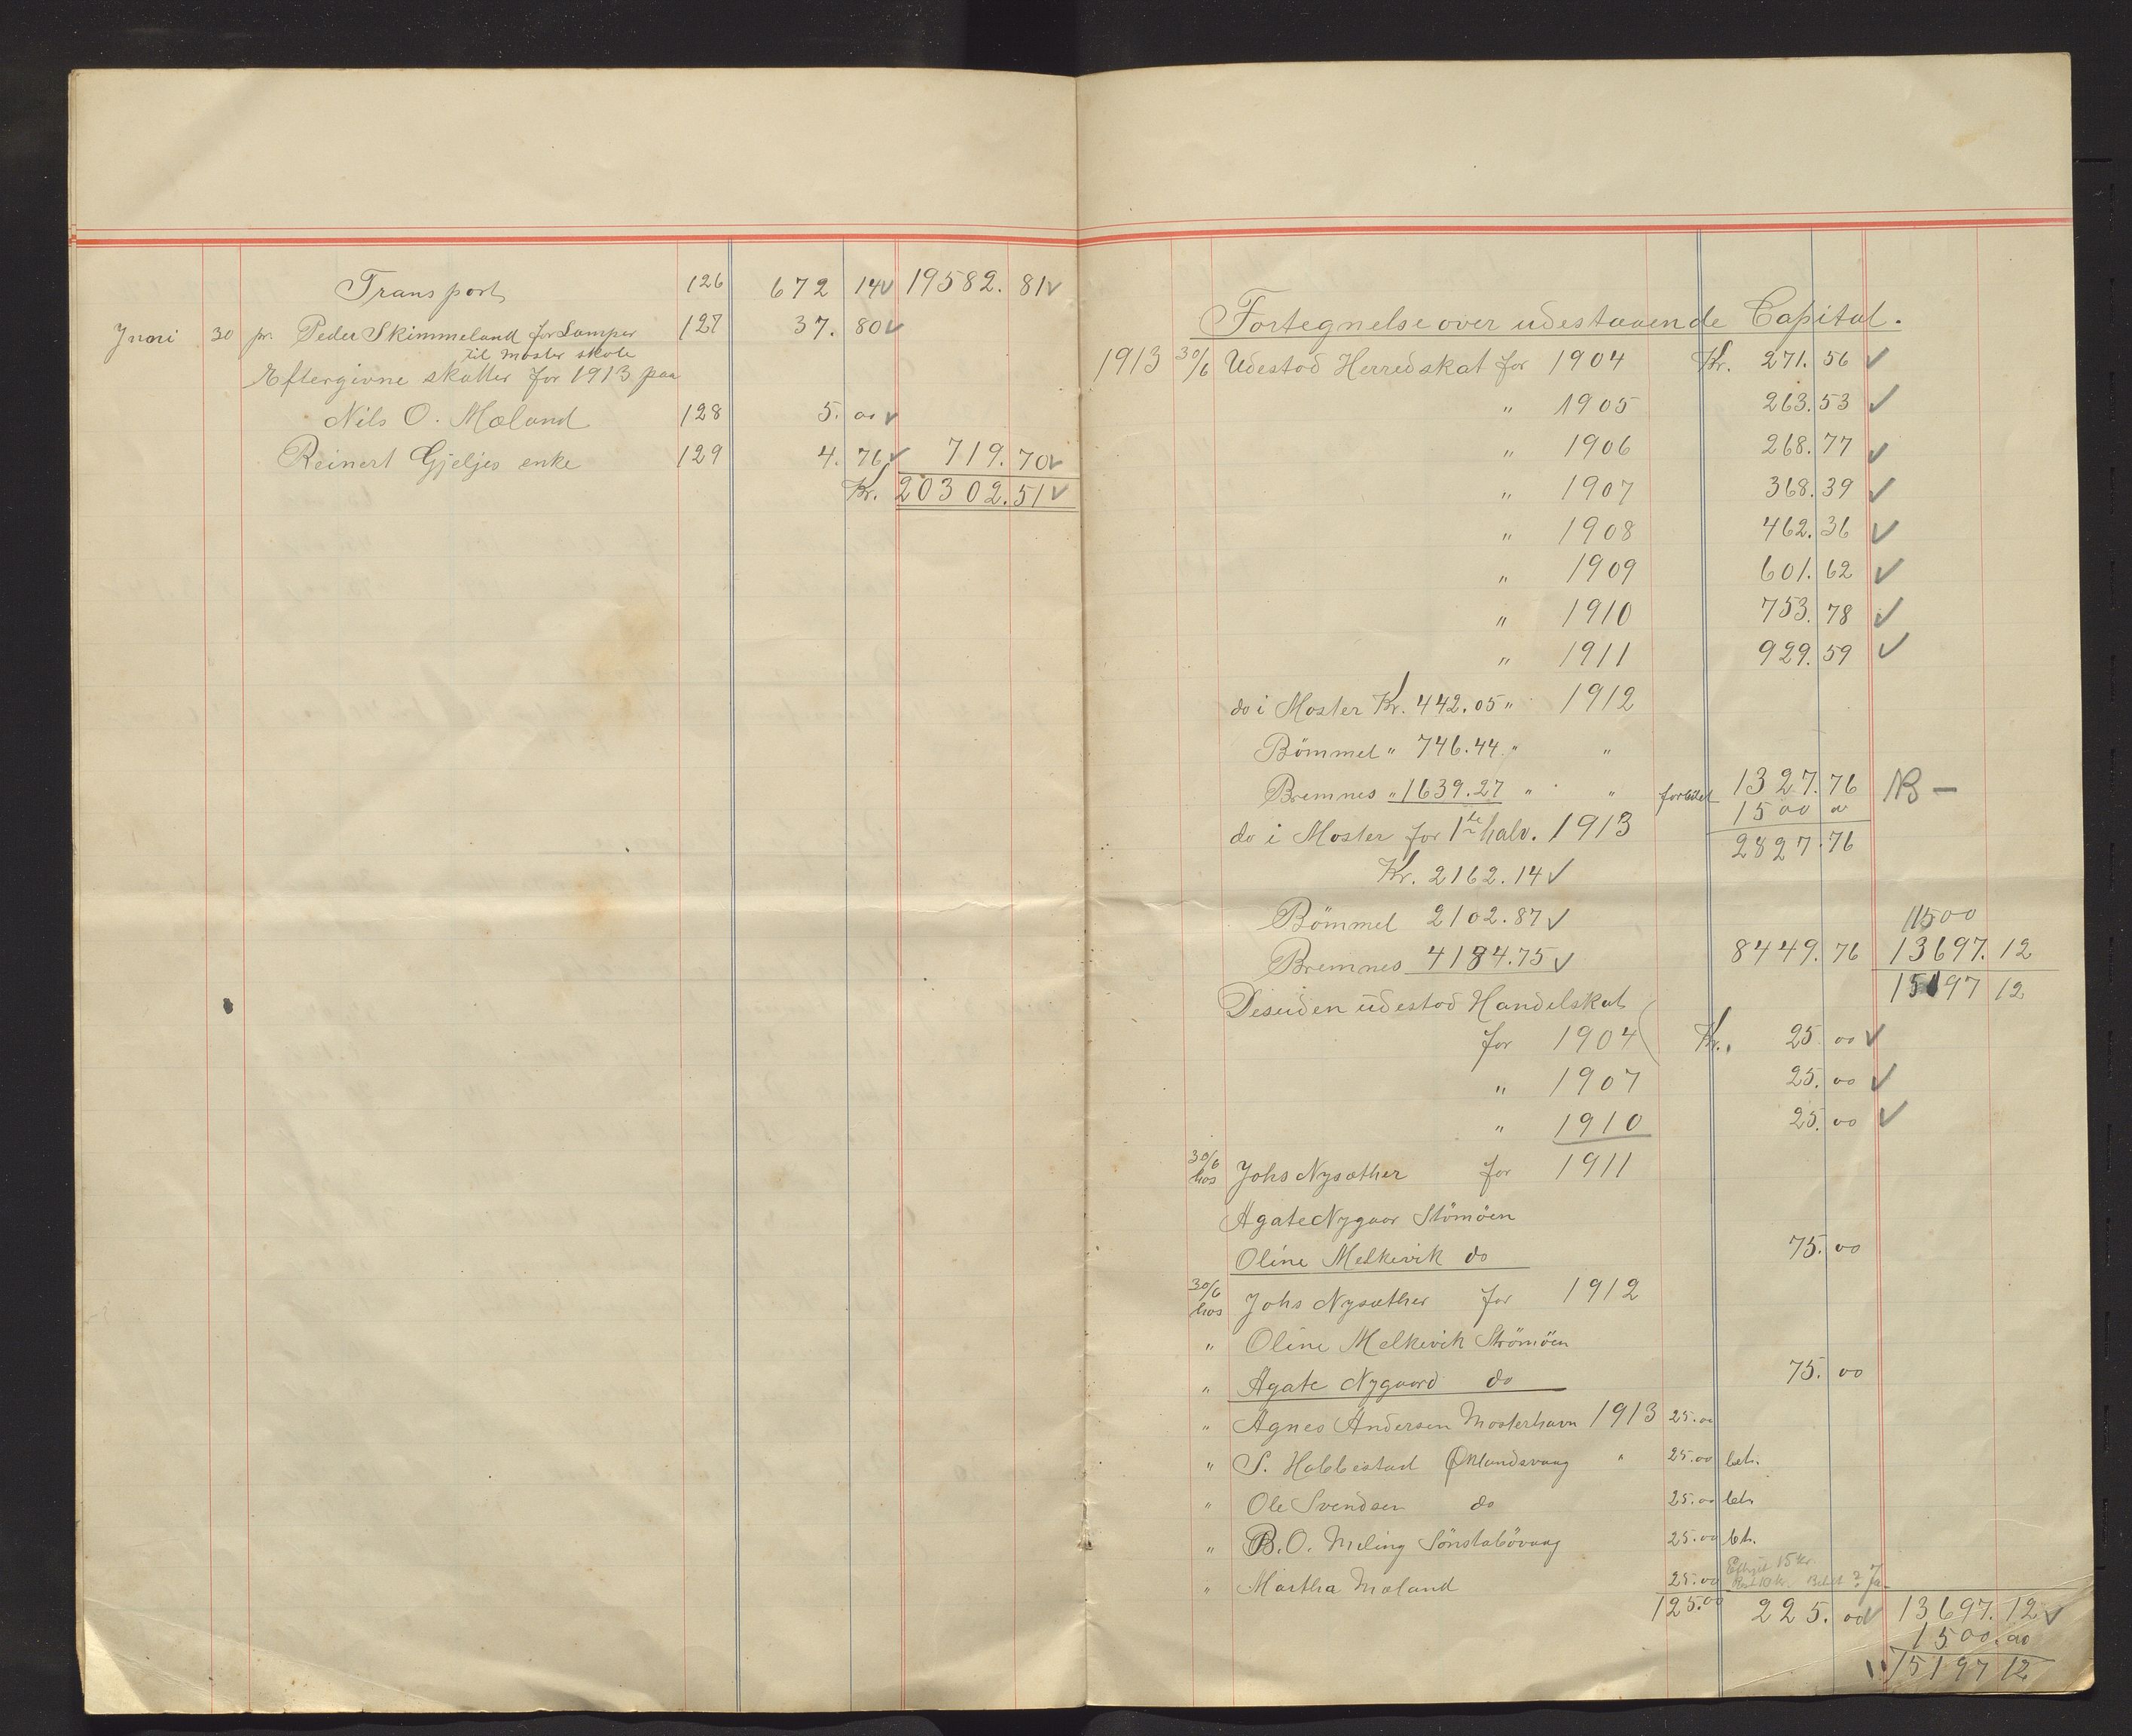 Transport 126 672 14 19582. 81
Juni 30 pr. Peder Skimmeland for Lamper 127 37. 80
til Moster skole
Eftergivne skatter for 1913 paa
Nils O. Mæland 128 5. 00
Reinert Gjeljes enke 129 4. 76 719. 70
Kr. 20302. 51
Fortegnelse over udestaaende Capital.
1913 30/6 Udestod Herredskat for 1904 Kr. 271. 56
" 1905 263. 53
" 1906 268. 77
" 1907 368. 39
" 1908 462. 36
" 1909 601. 62
" 1910 753. 78
" 1911 929. 59
do i Moster Kr. 442.05 " 1912
Bömmel " 746.44 " "
Bremnes " 1639.27 " " 1327. 76 NB -
1500 00
do i Moster for 1ste halv. 1913 2827. 76
Kr. 2162.14
Bömmel 2102.87 1500
Bremnes 4184.75 8449. 76 13697. 12
15197 12
Desuden udestod Handelskat
for 1904 Kr. 25 00
" 1907 25. 00
" 1910 25. 00
30/6 hos Johs Nysæther for 1911
Agate Nygaar Stömöen
Oline Melkevik do 75. 00
30/6 hos Johs Nysæther for 1912
" Oline Melkevik Strömöen
" Agate Nygaard do 75. 00
" Agnes Andersen Mosterhavn 1913 25.00
" S. Habbestad Øklandsvaag " 25.00 bet.
" Ole Svendsen do 25.00 bet.
" B. O. Meling Sönstabövaag 25.00 bet.
Eftergit 15 kr.
" Martha Mæland 25.00 Rest 10 kr. Betalt ? Ja
125.00 225. 00 13697. 12
1500. 00
15197 12